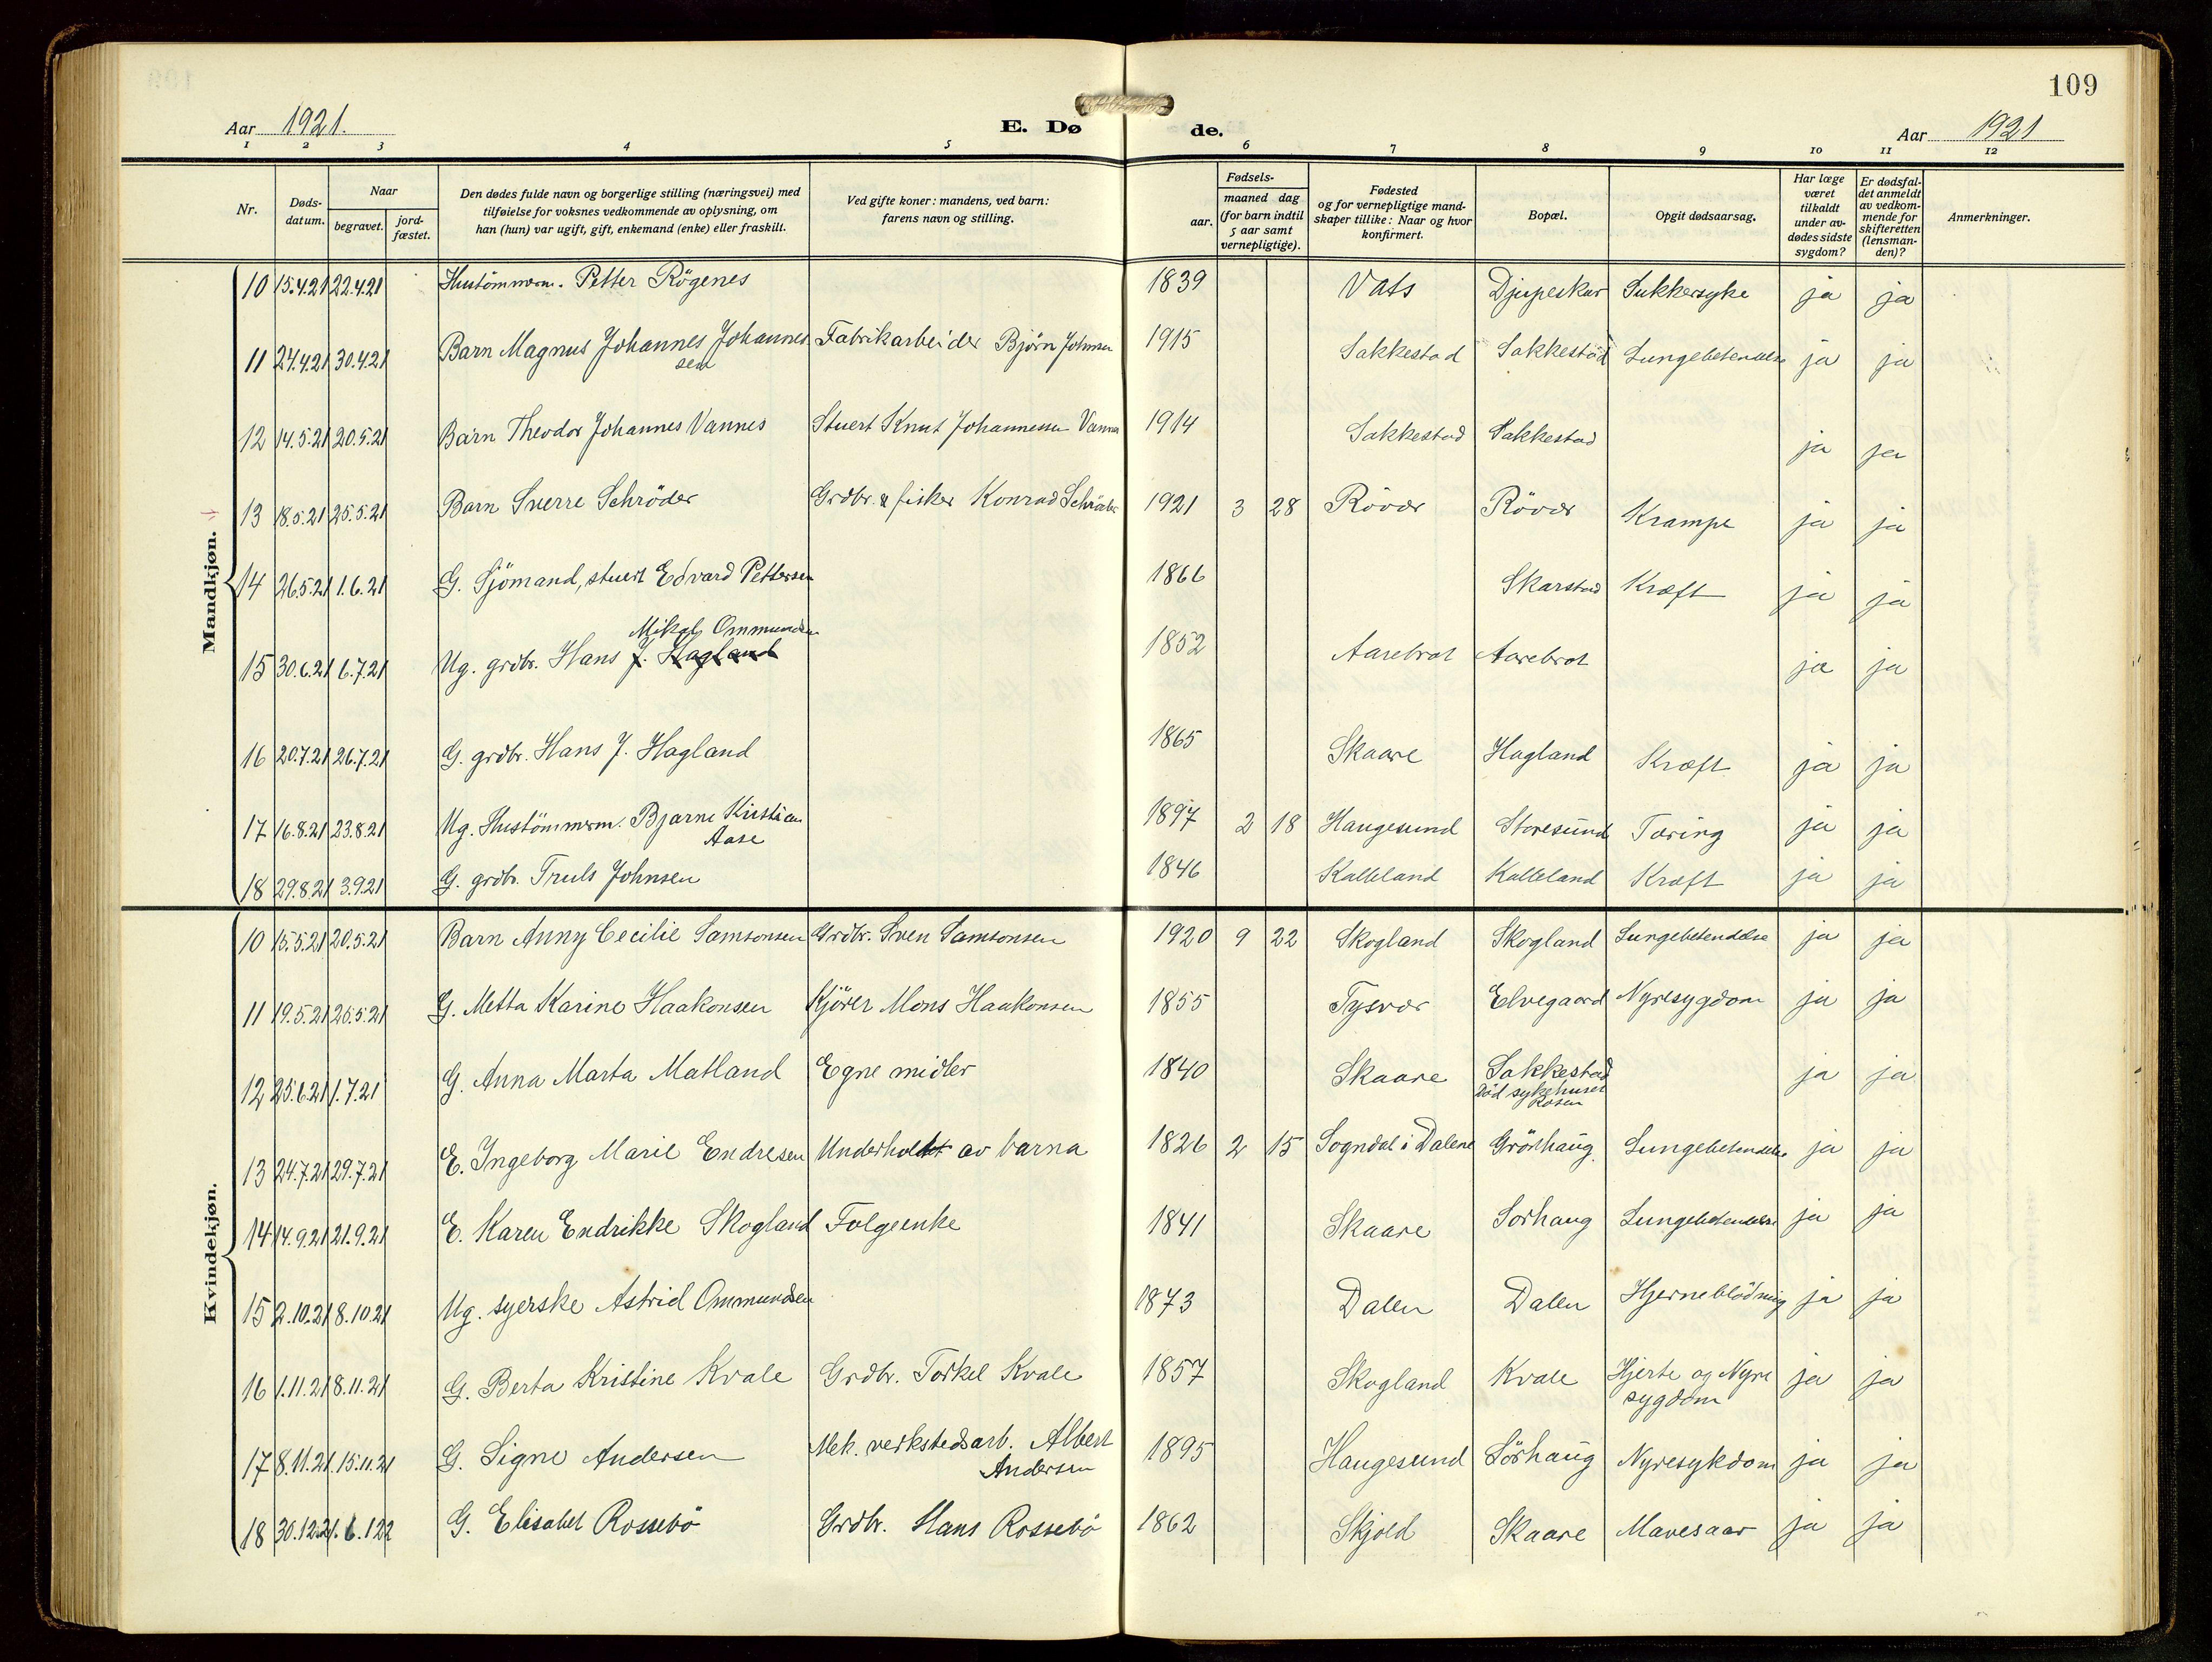 109
Aar 1921.
E. Dø de.
Aar 1921
1 2 3 4 5 6 7 8 9 10 11 12
Nr.
Døds-
datum.
Naar
begravet.
jord-
fæstet.
Den dødes fulde navn og borgerlige stilling (næringsvei) med
tilføielse for voksnes vedkommende av oplysning, om
han (hun) var ugift, gift, enkemand (enke) eller fraskilt.
Ved gifte koner: mandens, ved barn:
farens navn og stilling.
Fødsels-
aar.
maaned dag
(for barn indtil
5 aar samt
vernepligtige).
Fødested
og for vernepligtige mand-
skaper tillike: Naar og hvor
konfirmert.
Bopæl.
Opgit dødsaarsag.
Har læge
været
tilkaldt
under av-
dødes sidste
sygdom?
Er dødsfal-
det anmeldt
av vedkom-
mende for
skifteretten
(lensman-
den)?
Anmerkninger.
Mandkjøn.
10 15.4.21 22.4.21 Hustömmerm. Petter Rögenes 1839 Vats Djupeskar Sukkersyke ja ja
11 24.4.21 30.4.21 Barn Magnus Johannes Johannes Fabrikarbeider Bjørn Johnsen 1915 Sakkestad Sakkestad Lungebetendelse ja ja
sen
12 14.5.21 20.5.21 Barn Theodor Johannes Vannes Stuert Knut Johannessen Vannes 1914 Sakkestad Sakkestad ja ja
13 18.5.21 25.5.21 Barn Sverre Schröder Grdbr. & fisker Konrad Schröder 1921 3 28 Rövær Rövær Krampe ja ja
14 26.5.21 1.6.21 G. Sjömand, stuert Edvard Pettersen 1866 Skarstad Kræft ja ja
Mikal Ommundsen
15 30.6.21 6.7.21 Ug. grdbr. Hans J. Hagland 1852 Aarebrot Aarebrot ja ja
16 20.7.21 26.7.21 G. grdbr. Hans J. Hagland 1865 Skaare Hagland Kræft ja ja
17 16.8.21 23.8.21 Ug. Hustömmerm. Bjarne Kristian 1897 2 18 Haugesund Storesund Tæring ja ja
Aase
18 29.8.21 3.9.21 G. grdbr. Truls Johnsen 1846 Kalleland Kalleland Kræft ja ja
Kvindekjøn.
10 15.5.21 20.5.21 Barn Anny Cecilie Samsonsen Grdbr. Sven Samsonsen 1920 9 22 Skogland Skogland Lungebetendelse ja ja
11 19.5.21 26.5.21 G. Metta Karine Haakonsen Kjörer Mons Haakonsen 1855 Tysvær Elvegaard Nyresygdom ja ja
12 25.6.21 1.7.21 G. Anna Marta Matland Egne midler 1840 Skaare Sakkestad ja ja
Död sykehuset
Rosen
13 24.7.21 29.7.21 E. Ingeborg Marie Endresen Underholdt av barna 1826 2 15 Sogndal i Dalene Grönhaug Lungebetendelse ja ja
14 14.9.21 21.9.21 E. Karen Endrikke Skogland Folgeenke 1841 Skaare Sorhaug Lungebetendelse ja ja
15 2.10.21 8.10.21 Ug. syerske Astrid Ommundsen 1873 Dalen Dalen Hjerneblödning ja ja
16 1.11.21 8.11.21 G. Berta Kristine Kvale Grdbr. Torkel Kvale 1857 Skogland Kvale Hjerte og Nyre ja ja
sygdom
17 8.11.21 15.11.21 G. Signe Andersen Mek. verkstedsarb. Albert 1895 Haugesund Sörhaug Nyresykdom ja ja
Andersen
18 30.12.21 6.1.22 G. Elisabet Rossebö Grdbr. Hans Rossebö 1862 Skjold Skaare Mavesaar ja ja